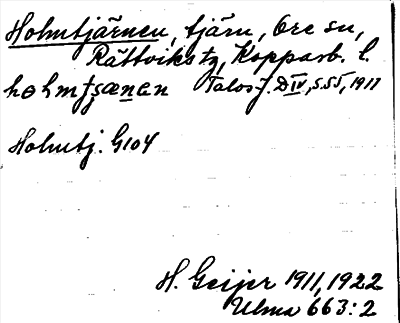 Holmtjärnen, tjärn, Ore sn,
Rättviks tg, Kopparb. l.
Talos J. D IV, s. 55, 1911
Holmtj. G104
H. Geijer 1911, 1922
Ulma 663:2